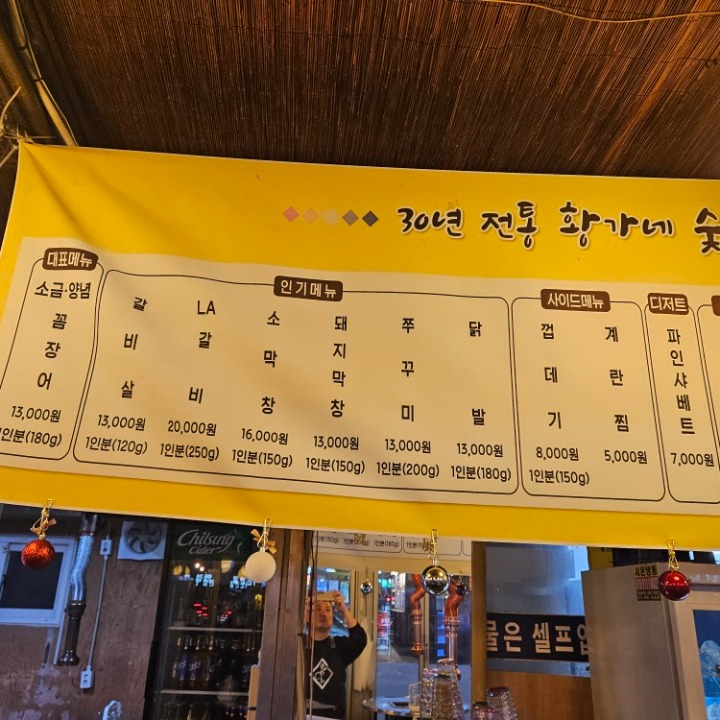 30년 전통 황가네 숯
대표메뉴
소금·양념
꼼장어
13,000원
1인분(180g)
인기메뉴
갈비살
13,000원
1인분(120g)
LA갈비
20,000원
1인분(250g)
소막창
16,000원
1인분(150g)
돼지막창
13,000원
1인분(150g)
쭈꾸미
13,000원
1인분(200g)
닭발
13,000원
1인분(180g)
사이드메뉴
껍데기
8,000원
1인분(150g)
계란찜
5,000원
디저트
파인샤베트
7,000원
Chilsung
Cider
물은 셀프입